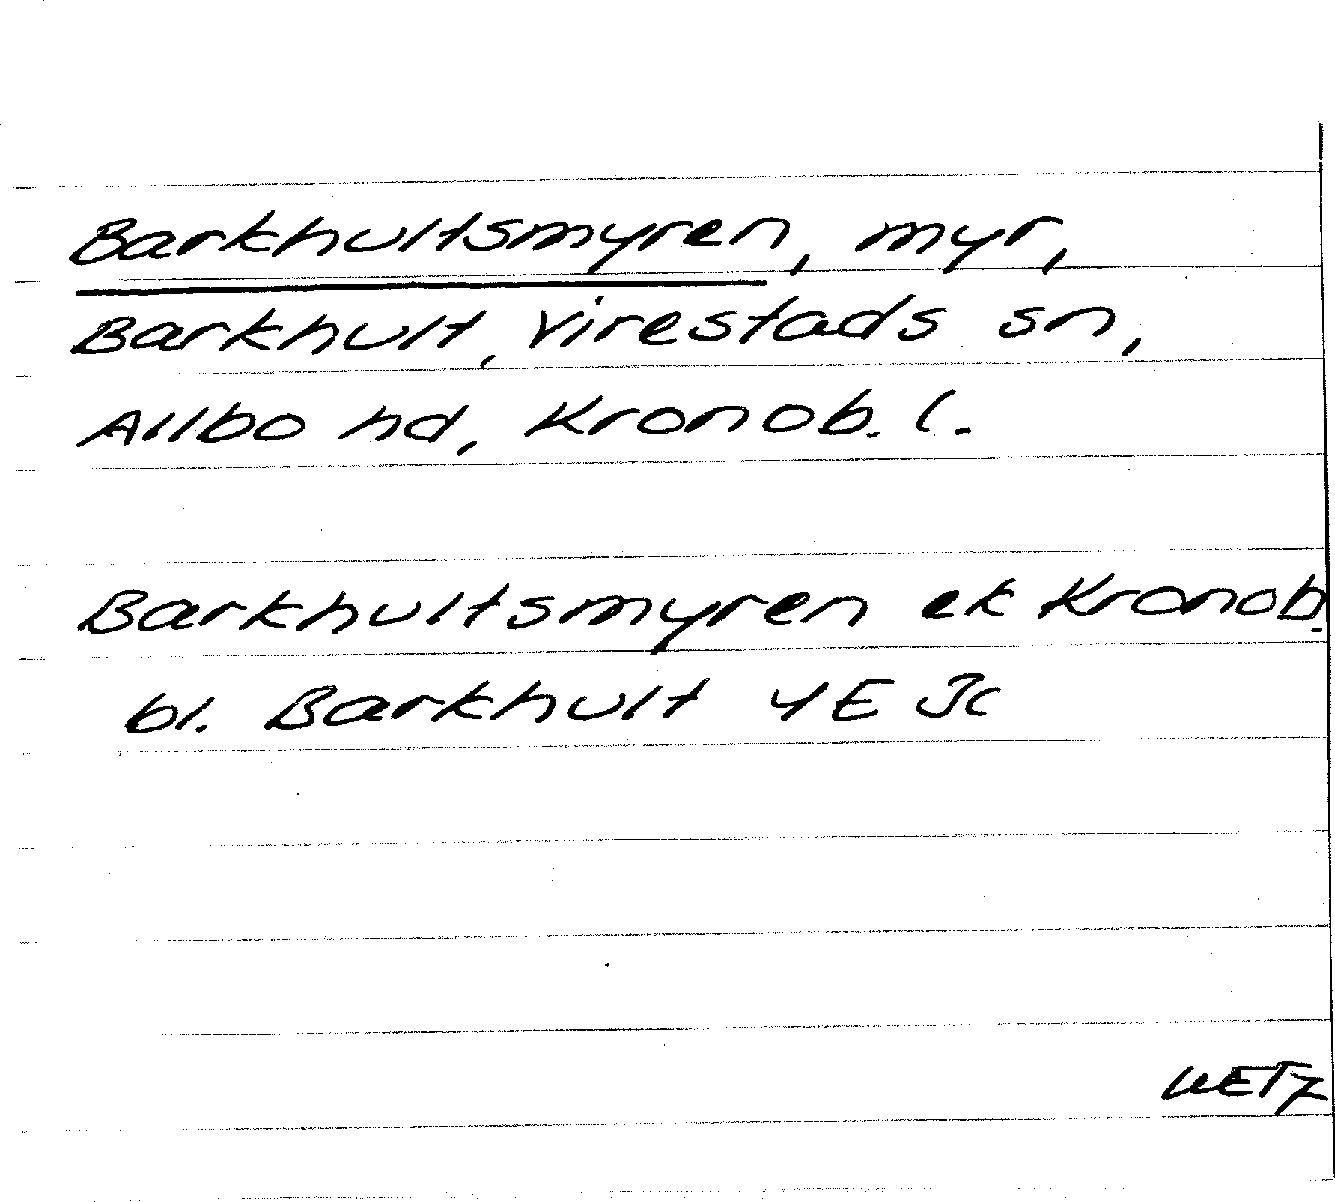 Barkhultsmyren, myr,
Barkhult, Virestads sn,
Allbo hd, Kronob. l.
Barkhultsmyren ek Kronob.
bl. Barkhult 4E Jc